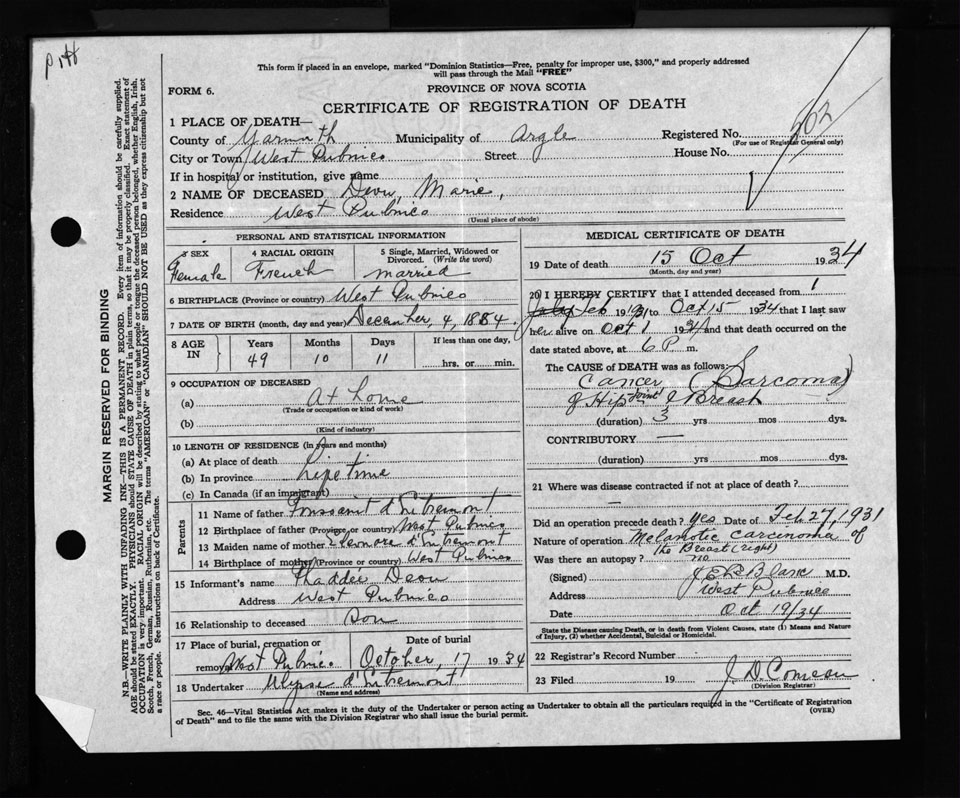 This form if placed in an envelope, marked "Dominion Statistics—Free, penalty for improper use, $300," and properly addressed
will pass through the Mail "FREE"
FORM 6.
PROVINCE OF NOVA SCOTIA
CERTIFICATE OF REGISTRATION OF DEATH
1 PLACE OF DEATH—
County of Yarmouth Municipality of Argle Registered No. 202
(For use of Registrar General only)
City or Town West Pubnico Street House No.
If in hospital or institution, give name
2 NAME OF DECEASED Deon, Marie,
Residence West Pubnico
(Usual place of abode)
PERSONAL AND STATISTICAL INFORMATION
3 SEX 4 RACIAL ORIGIN 5 Single, Married, Widowed or
Divorced. (Write the word)
Female French married
6 BIRTHPLACE (Province or country) West Pubnico
7 DATE OF BIRTH (month, day and year) December, 4, 1884.
8 AGE IN Years Months Days If less than one day,
49 10 11 hrs. or min.
9 OCCUPATION OF DECEASED
(a) At home
(Trade or occupation or kind of work)
(b)
(Kind of industry)
10 LENGTH OF RESIDENCE (In years and months)
(a) At place of death
(b) In province Life time
(c) In Canada (if an immigrant)
Parents
11 Name of father Toussaint d'Entremont
12 Birthplace of father (Province or country) West Pubnico
13 Maiden name of mother Eleonore d'Entremont
14 Birthplace of mother (Province or country) West Pubnico
15 Informant's name Thaddee Deon
Address West Pubnico
16 Relationship to deceased Son
17 Place of burial, cremation or Date of burial
removal West Pubnico October, 17 1934
18 Undertaker Ulysse d'Entremont
(Name and address)
MEDICAL CERTIFICATE OF DEATH
19 Date of death 15 Oct 1934
(Month, day and year)
20 I HEREBY CERTIFY that I attended deceased from 1
Feb 1931 to Oct 15 1934 that I last saw
her alive on Oct 1 1934 and that death occurred on the
date stated above, at 6 P m.
The CAUSE of DEATH was as follows:
Cancer (Sarcoma)
of Hip joint & Breast
(duration) 3 yrs mos dys.
CONTRIBUTORY —
(duration) yrs mos dys.
21 Where was disease contracted if not at place of death?
—
Did an operation precede death? yes Date of Feb 27, 1931
Nature of operation Melanotic carcinoma of
the Breast (right)
Was there an autopsy? no
(Signed) LeBlanc M.D.
Address West Pubnico
Date Oct 19/34
State the Disease causing Death, or in death from Violent Causes, state (1) Means and Nature
of Injury, (2) whether Accidental, Suicidal or Homicidal.
22 Registrar's Record Number
23 Filed 19 J. D. Comeau
(Division Registrar)
Sec. 46—Vital Statistics Act makes it the duty of the Undertaker or person acting as Undertaker to obtain all the particulars required in the "Certificate of Registration
of Death" and to file the same with the Division Registrar who shall issue the burial permit.
(OVER)
MARGIN RESERVED FOR BINDING
N.B.—WRITE PLAINLY WITH UNFADING INK—THIS IS A PERMANENT RECORD. Every item of information should be carefully supplied.
AGE should be stated EXACTLY. PHYSICIANS should STATE CAUSE OF DEATH in plain terms, so that it may be properly classified. Exact statement of
OCCUPATION is very important. RACIAL ORIGIN will be described by stating to what people or tongue the deceased person belonged, whether English, Irish,
Scotch, French, German, Russian, Ruthenian, etc. The terms "AMERICAN" or "CANADIAN" SHOULD NOT BE USED as they express citizenship but not
a race or people. See instructions on back of Certificate.